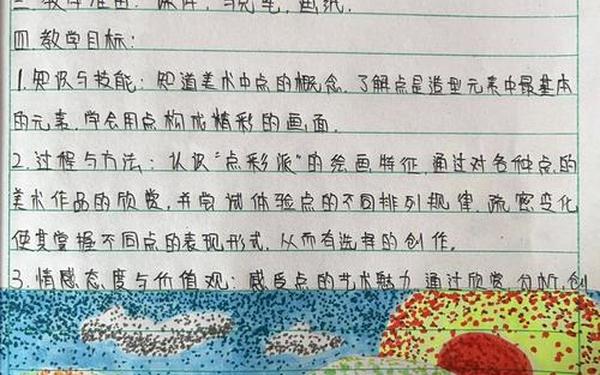 三.教学准备:课件,马克笔,画纸.
四.教学目标:
1.知识与技能:知道美术中点的概念.了解点是造型元素中最基本
的元素.学会用点构成精彩的画面.
2.过程与方法:认识"点彩派"的绘画特征.通过对各种点的
美术作品的欣赏,并尝试体验点的不同排列规律,疏密变化
使其掌握不同点的表现形式,从而有选择的创作。
3.情感态度与价值观:感受点的艺术魅力.通过欣赏,分析,创